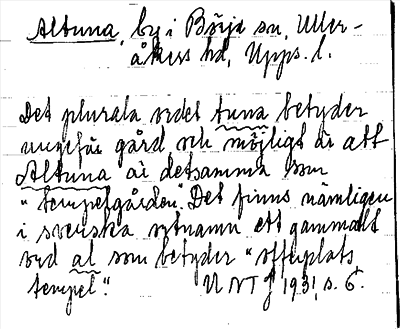 Altuna, by i Börje sn, Uller-
åkers hd, Upps. l.
Det plurala ordet tuna betyder
ungefär gård och möjligt är att
Altuna är detsamma som
"tempelgården". Det finns nämligen
i svenska ortnamn ett gammalt
ord al som betyder "offerplats
tempel". UNT 1931, s. 6.